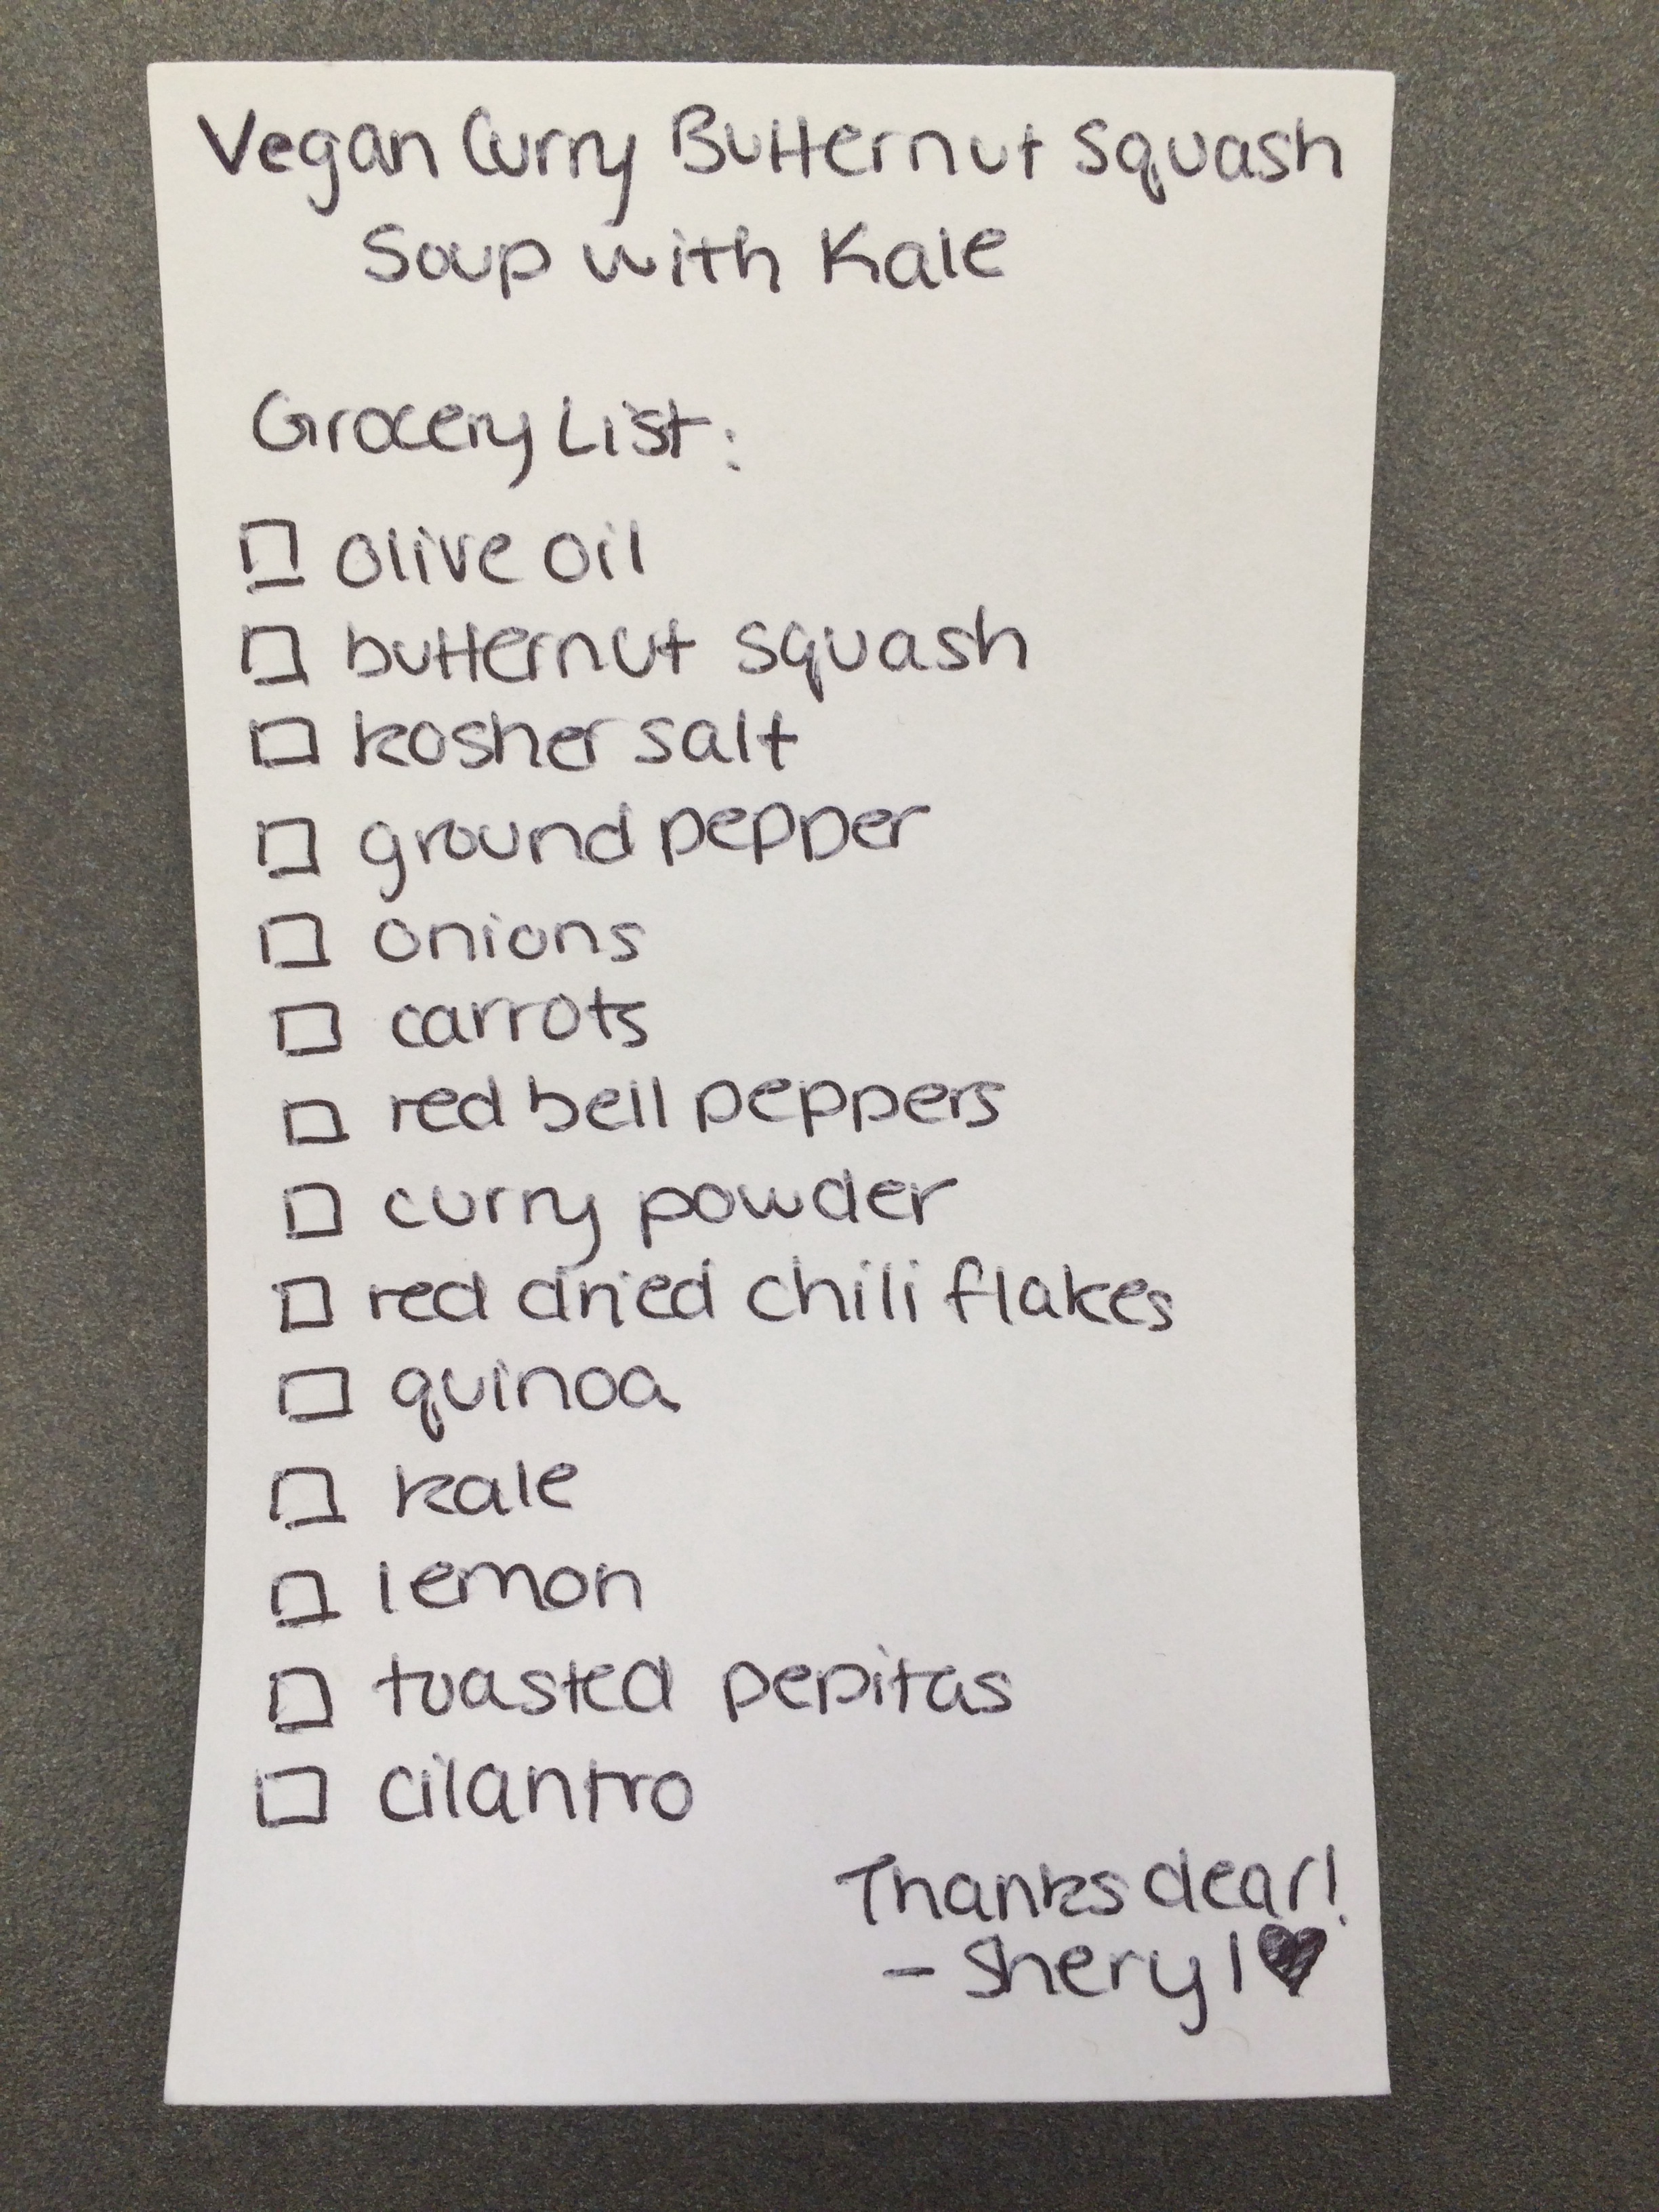 Vegan Curry Butternut Squash
Soup with Kale
Grocery List:
olive oil
butternut squash
kosher salt
ground pepper
onions
carrots
red bell peppers
curry powder
red dried chili flakes
quinoa
kale
lemon
toasted pepitas
cilantro
Thanks dear!
- Sheryl ♥